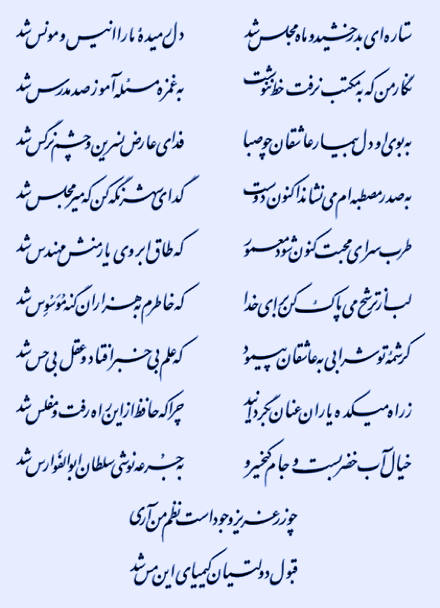 ستاره‌ای بدرخشید و ماه مجلس شد دل رمیدهٔ ما را انیس و مونس شد
نگار من که به مکتب نرفت و خط ننوشت به غمزه مسئله‌آموز صد مدرس شد
به بوی او دل بیمار عاشقان چو صبا فدای عارض نسرین و چشم نرگس شد
به صدر مصطبه‌ام می‌نشاند اکنون دوست گدای شهر نگه کن که میر مجلس شد
طرب سرای محبت کنون شود معمور که طاق ابروی یار منش مهندس شد
لب از ترشح می پاک کن برای خدا که خاطرم به هزاران گنه مُوَسْوِس شد
کرشمهٔ تو شرابی به عاشقان پیمود که علم بی‌خبر افتاد و عقل بی‌حس شد
ز راه میکده یاران عنان بگردانید چرا که حافظ از این راه رفت و مفلس شد
خیال آب خضر بست و جام کیخسرو به جرعه نوشی سلطان ابوالفوارس شد
چو زر عزیز وجود است نظم من آری
قبول دولتیان کیمیای این مس شد